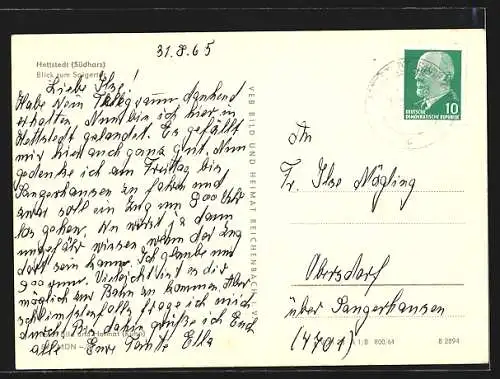 31.8.65
Hettstedt (Südharz)
Blick zum Saigertor
Liebe Ilse!
Habe Dein Telegramm dankend
erhalten Nun bin ich hier in
Hettstedt gelandet. Es gefällt
mir hier auch ganz gut. Nun
gedenke ich am Freitag bis
Sangerhausen zu fahren und
zwar soll ein Zug um 8 00 Uhr
los gehen. Du wirst ja dann
ungefähr wissen wenn der Zug
dort sein kann. Ich glaube um
9 00 rum. Vieleicht ist es dir
möglich zur Bahn zu kommen. Aber
schlimmstenfalls frage ich mich
durch. Bis dahin grüße ich Euch
alle Eure Tante Ella
VEB BILD UND HEIMAT REICHENBACH i. V.
DEUTSCHE
DEMOKRATISCHE REPUBLIK
10
An
Fr. Ilse Nögling
Obersdorf
über Sangerhausen
(4701)
A 1/B 800/64
B 2894